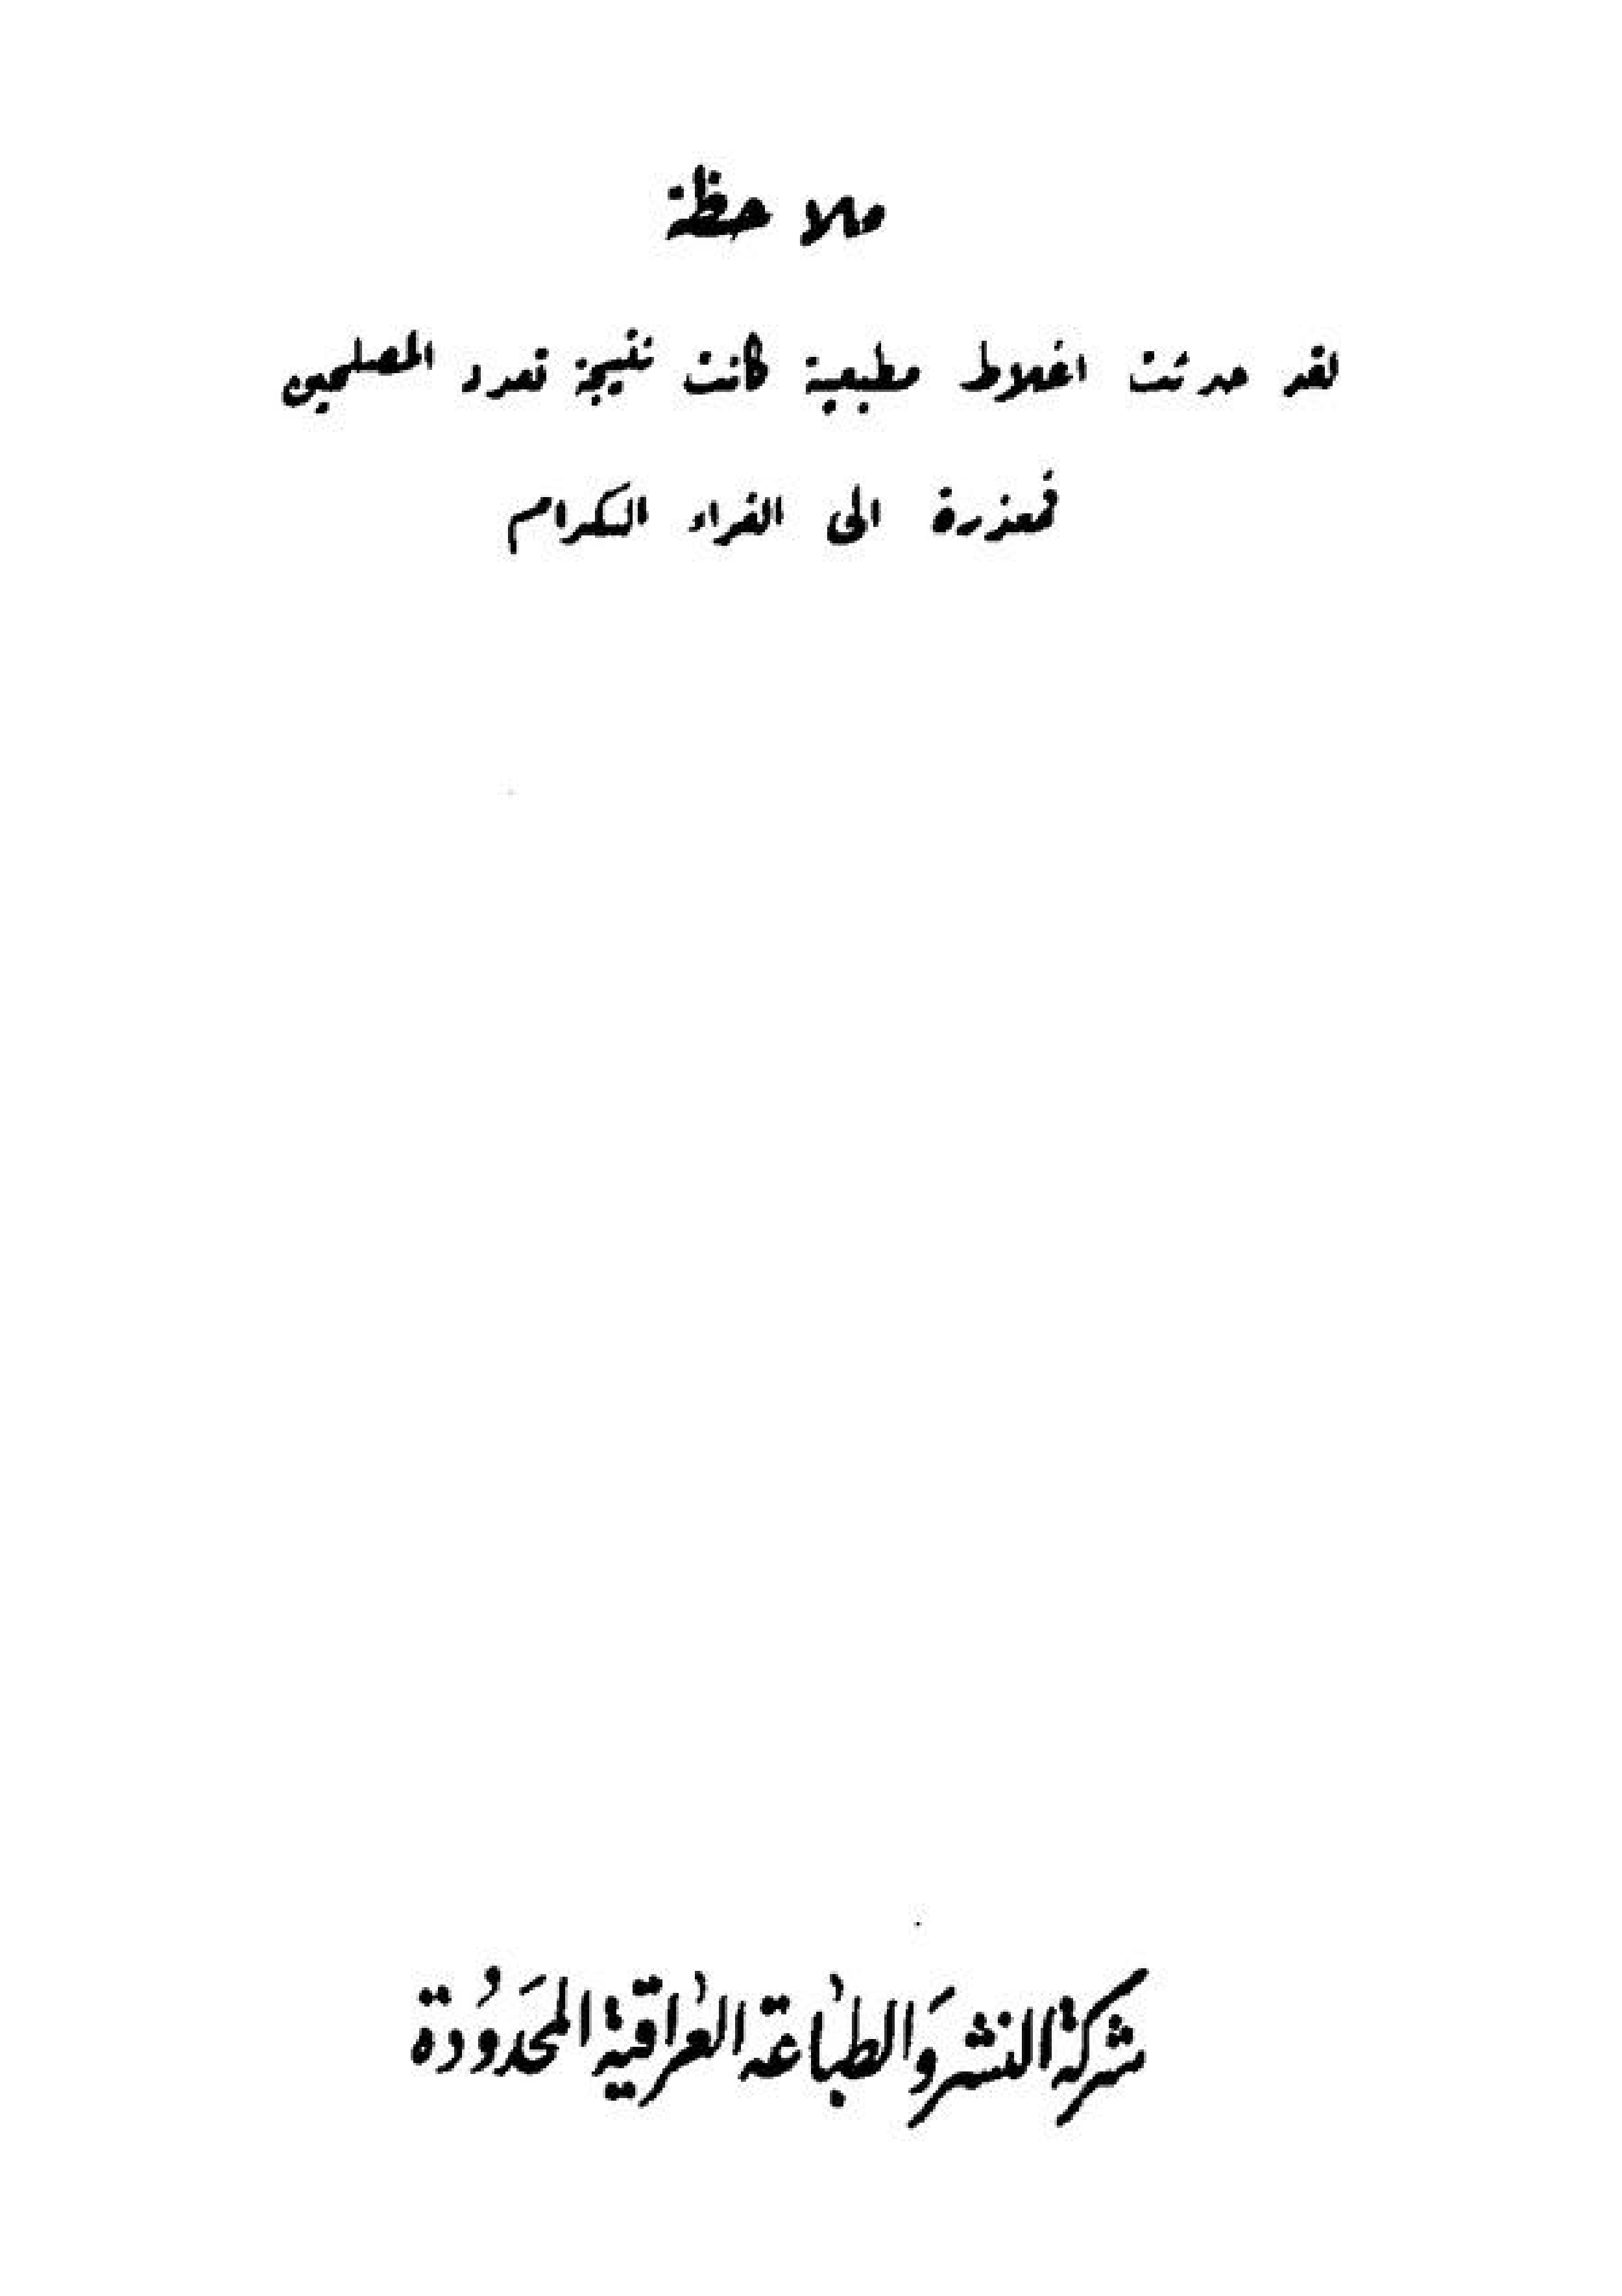 ملاحظة
لقد حدثت اغلاط مطبعية كانت نتيجة تعدد المصلحين
فمعذرة الى القراء الكرام
شركة النشر وَالطباعة العراقية المحَدوُدة